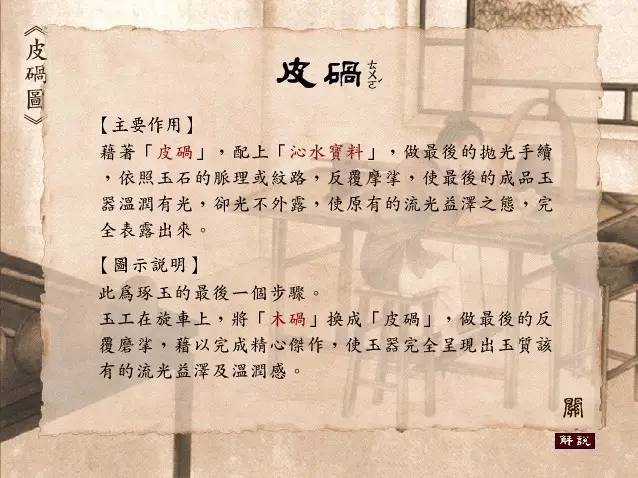 《皮碢圖》
皮碢ㄊㄨㄛˊ
【主要作用】
藉著「皮碢」，配上「沁水寶料」，做最後的拋光手續
，依照玉石的脈理或紋路，反覆摩挲，使最後的成品玉
器溫潤有光，卻光不外露，使原有的流光益澤之態，完
全表露出來。
【圖示說明】
此爲琢玉的最後一個步驟。
玉工在旋車上，將「木碢」換成「皮碢」，做最後的反
覆磨挲，藉以完成精心傑作，使玉器完全呈現出玉質該
有的流光益澤及溫潤感。
關
解說